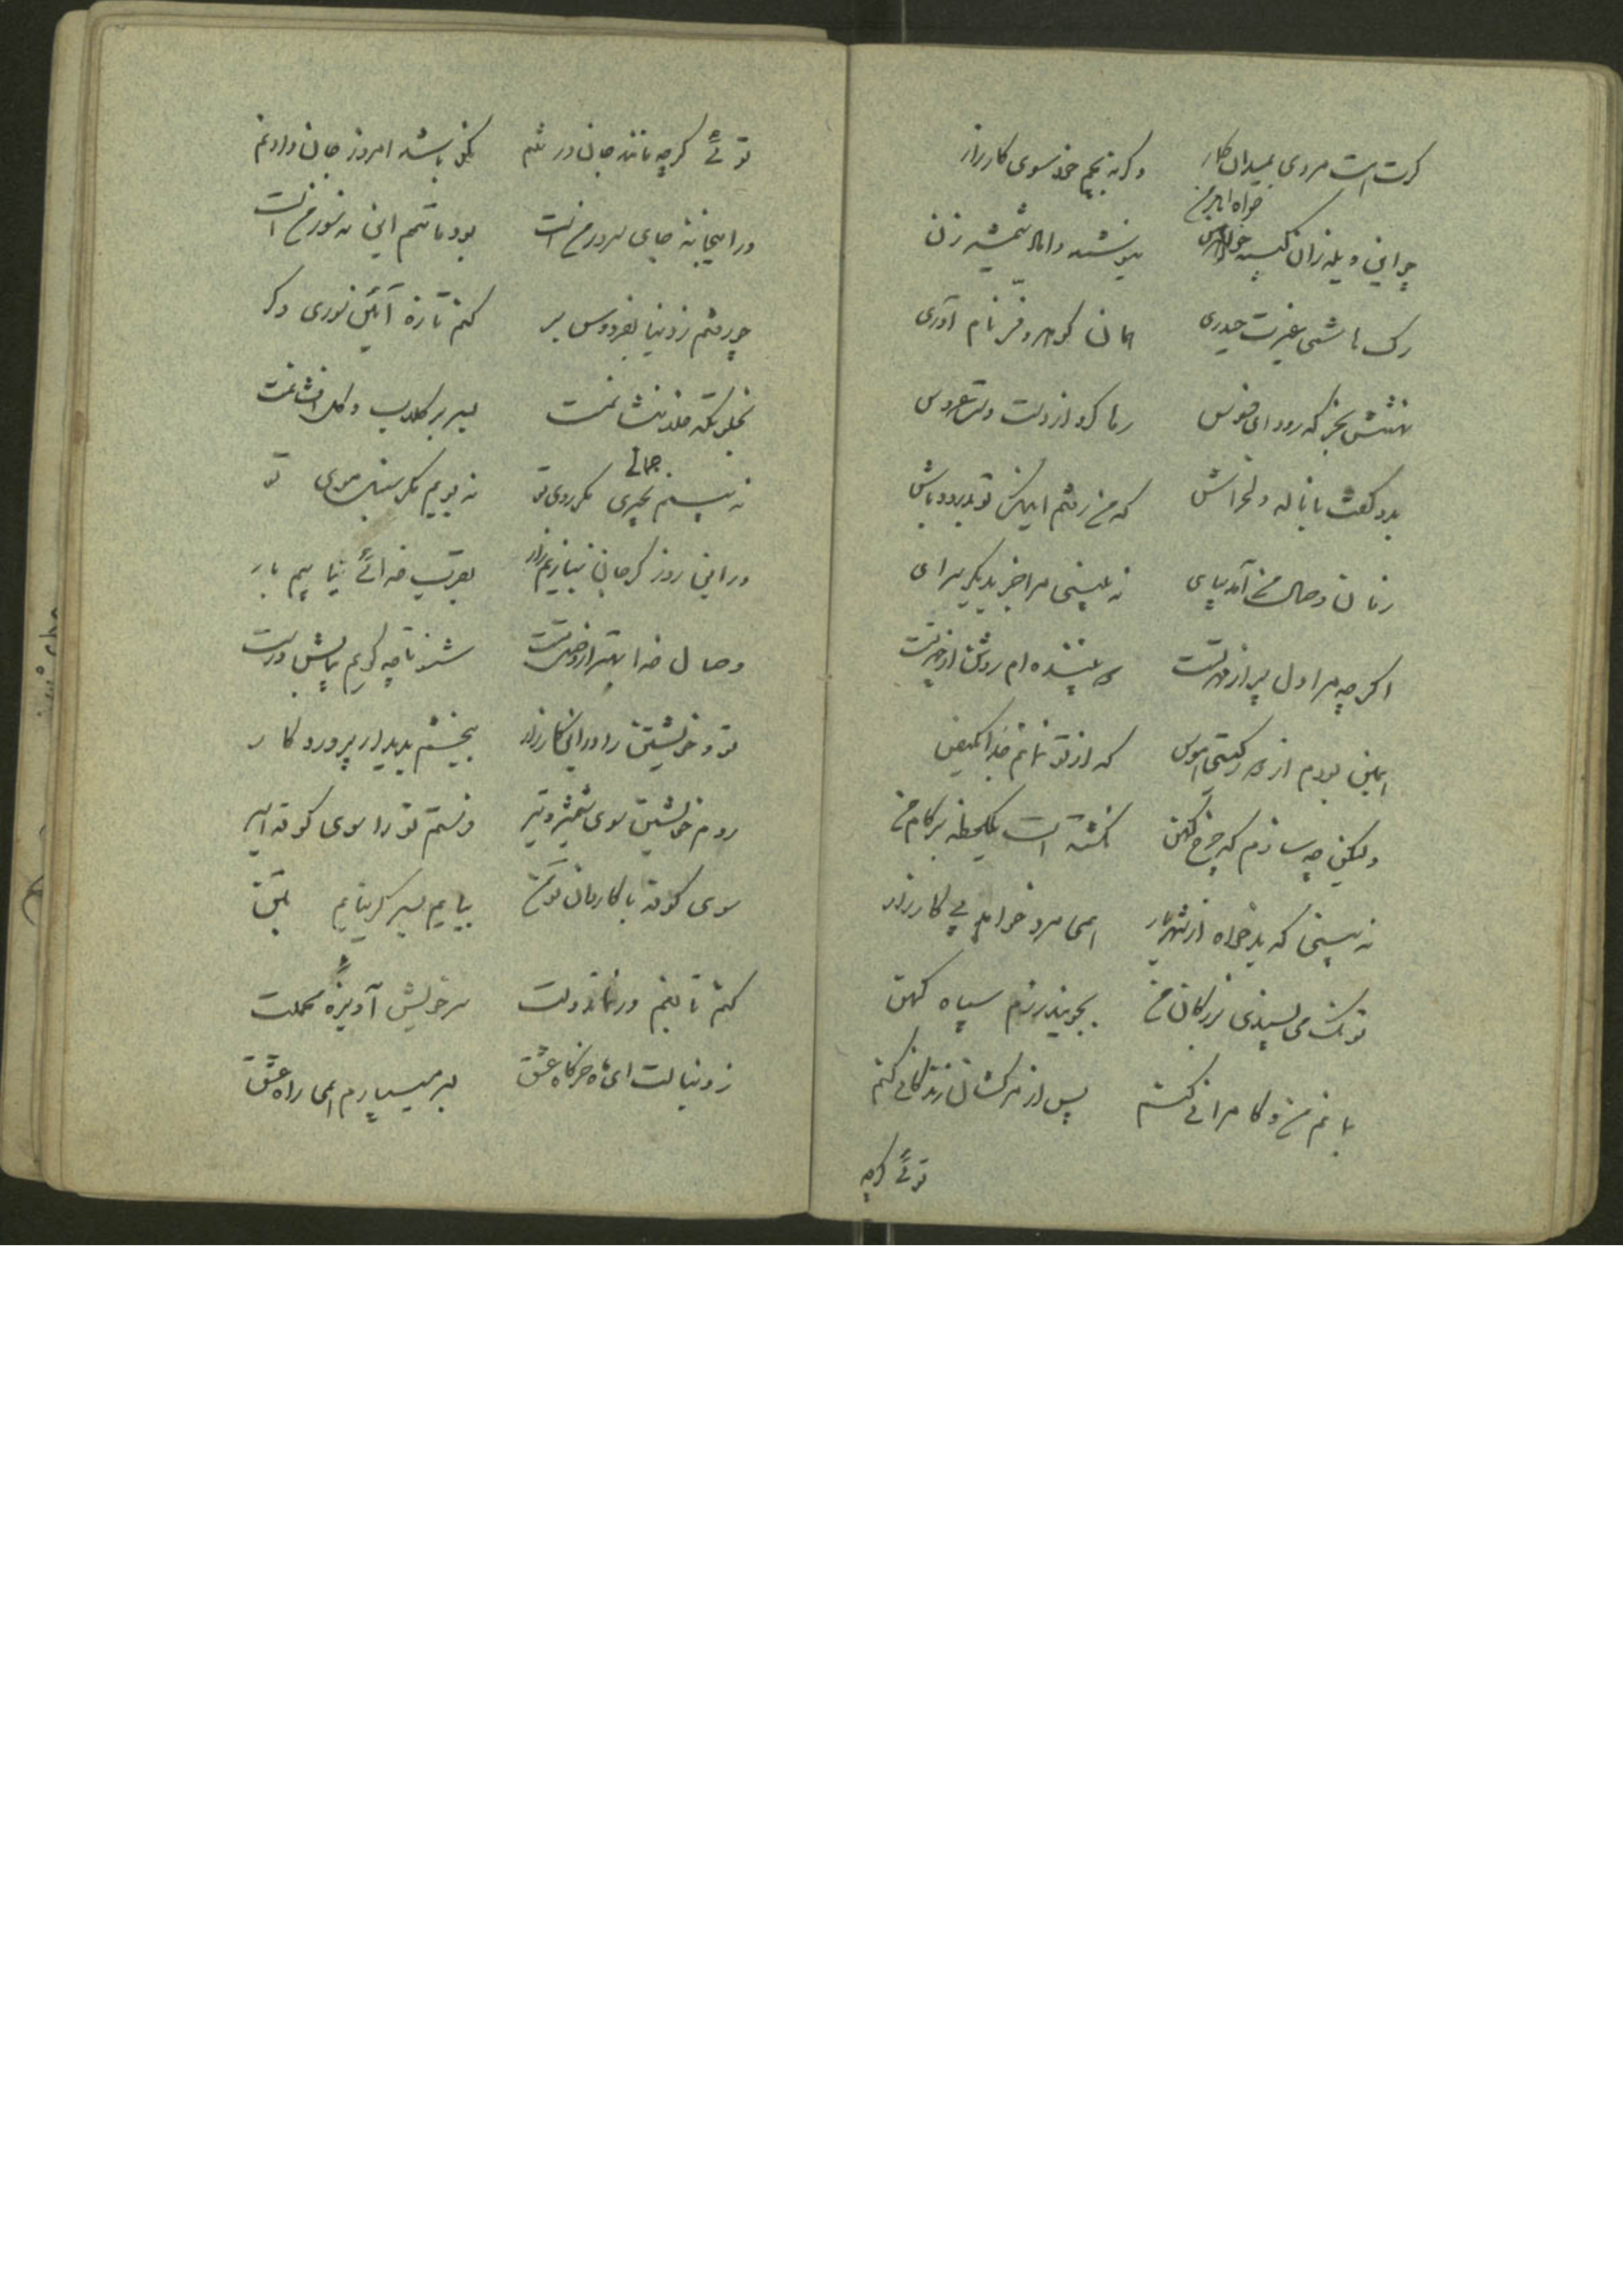 گرت است مردی بمیدان کار    وگرنه بچم خود سوی کارزار
خواه ایدر من
چو این ویله زان کینه خواه    نیوشید داماد شمشیر زن
رگ هاشمی غیرت حیدری    همان گوهر و فر نام آوری
رها کرد از دست دست عروس
بدو گفت با ناله دلخراش    که من رفتم اینک تو بدرود باش
زمان وصال من آمد بپای    نه بینی مرا جز بدیگر سرای
اگرچه مرا دل پر از مهر تست    بیننده ام روشن از چهر تست
همین بودم از گیتی    که از تو نمانم جدا
ولیکن چه سازم که چرخ کهن    نگشته است یکلحظه بر کام من
نه بینی که بدخواه از شهریار    همی مرد خواهد پی کارزار
تو کی می پسندی بزرگان من    بجویند رزم سپاه کهن
بمانم من و کامرانی کنم    پس از مرگشان زندگانی کنم
توئی گرچه
توئی گرچه مانند جان در تنم    نکو باشد امروز جان دادنم
در اینجا نه جای سرور من است    بود ماتم این نه سور من است
چو رفتم ز دنیا بفردوس بر    کنم تازه آئین سوری دگر
بخلوتگه خلد بنشانمت    بسر بر گلاب و گل افشانمت
جمالی
نه بینم بچیزی مگر روی تو    نه بویم مگر سنبل موی تو
در این روز گر جان نبازیم زار    بقرب خدائی نیابیم بار
وصال خدا بهتر از وصل تست    شنو تا چه گویم بپاسخ درست
تو و خویشتن را در این کارزار    ببخشم بدیدار پروردگار
روم خویشتن سوی شمشیر و تیر    فرستم تو را سوی کوفه اسیر
سوی کوفه با کاروان تو من    بیایم بسر گر نیایم بتن
کنم تا بغم در نماند دلت    سر خویش آویزهٔ محملت
ز دنبالت ای ماه خرگاه عشق    بسر میسپارم همی راه عشق